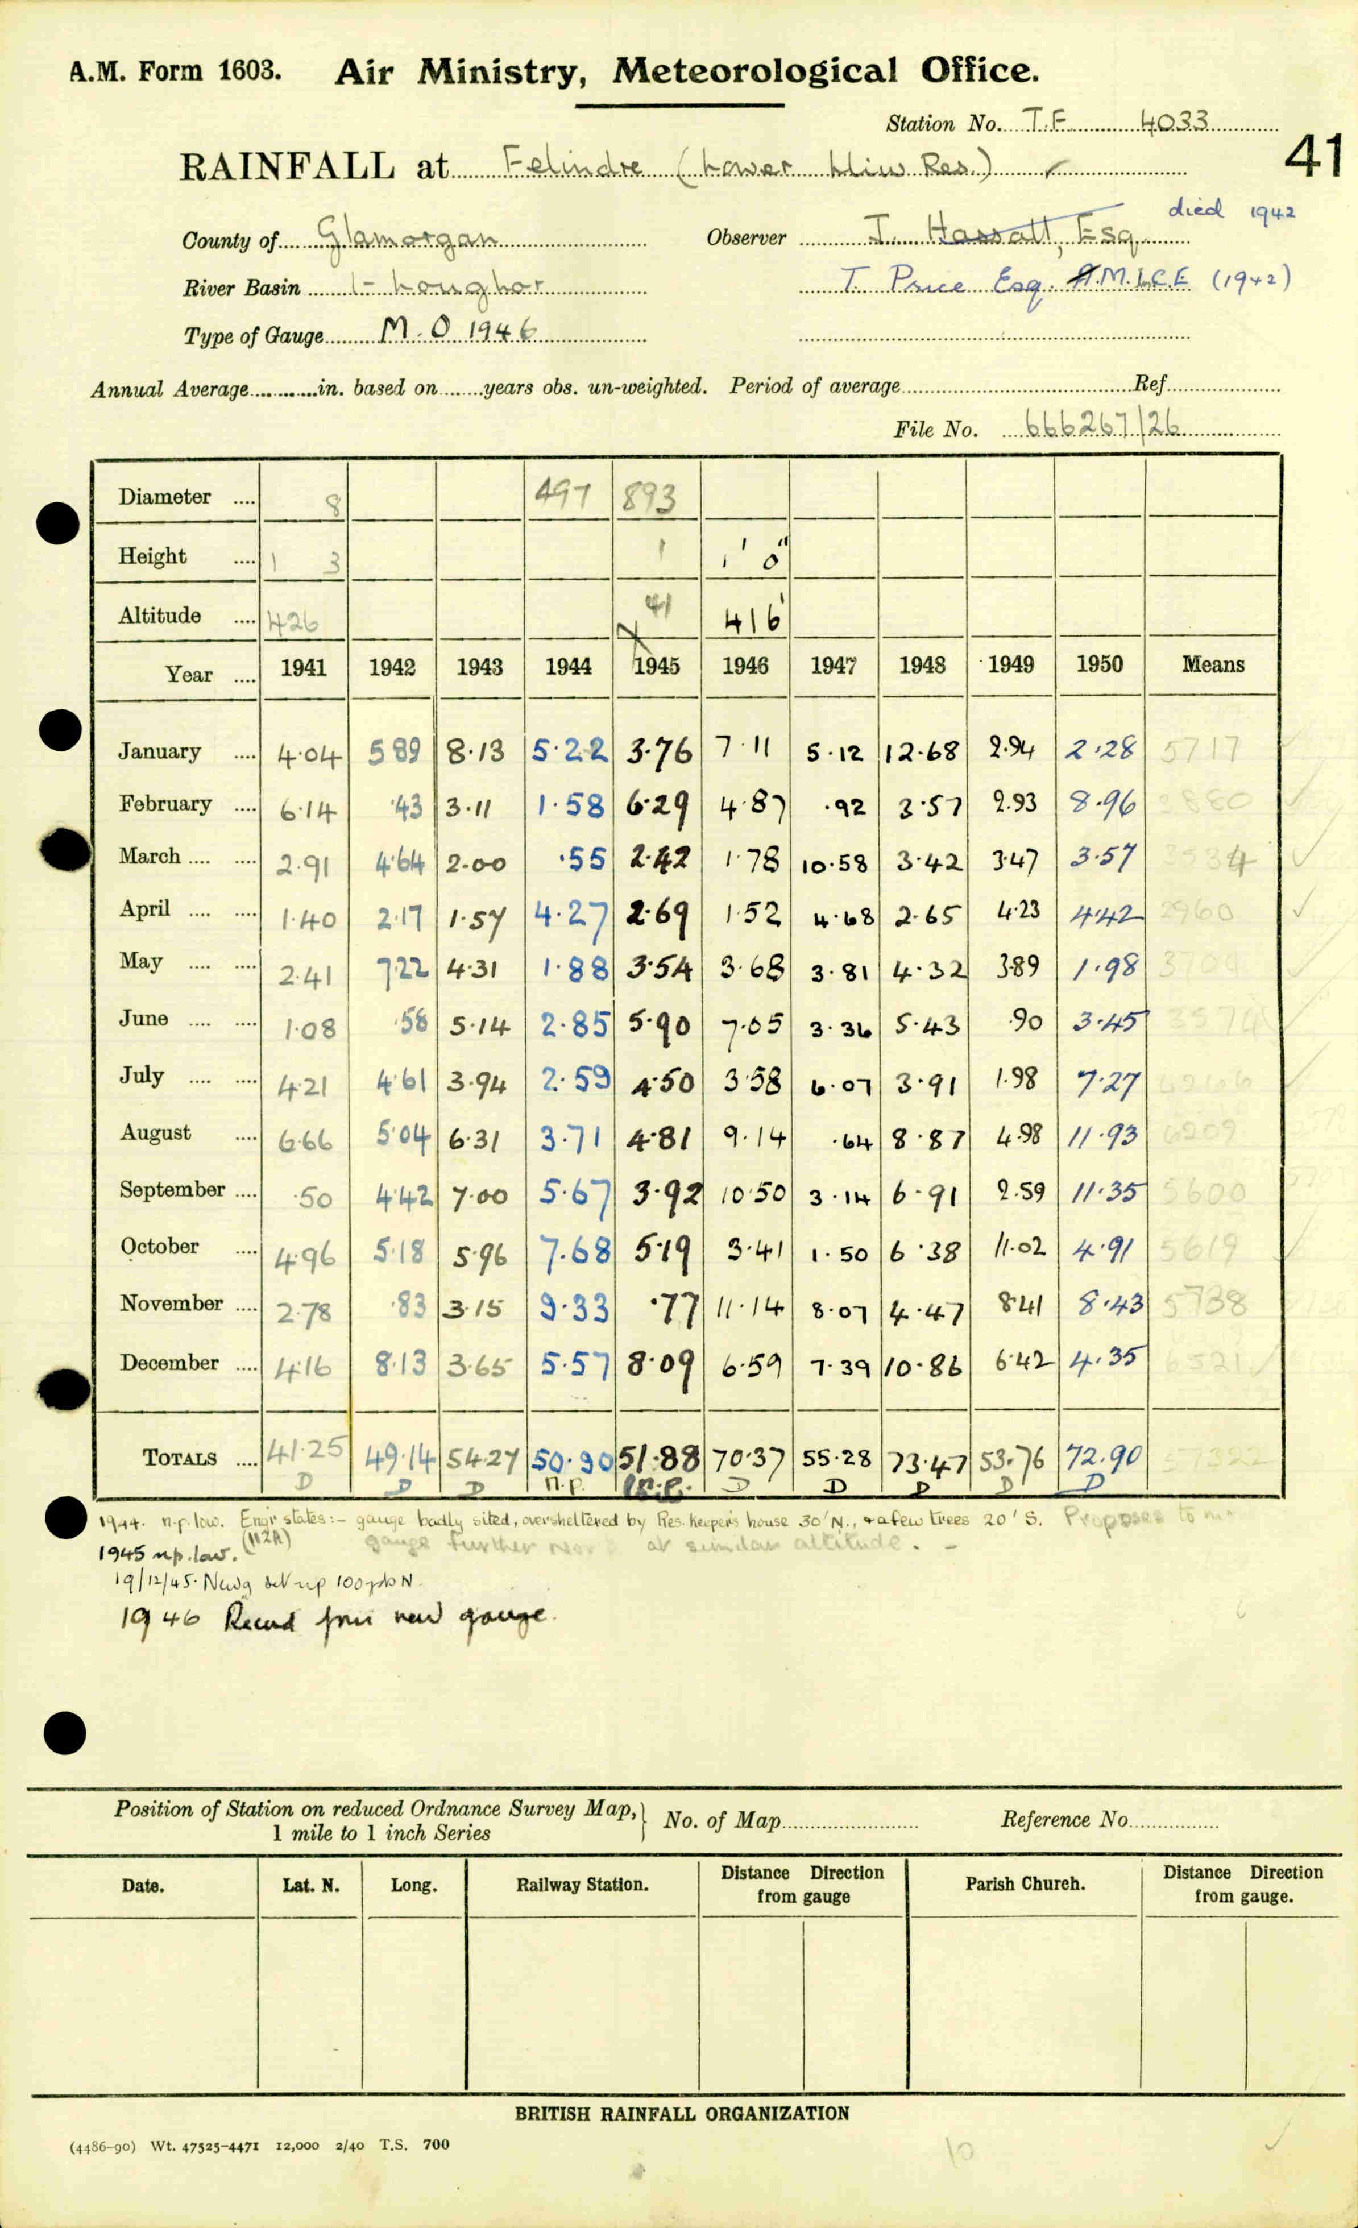 A.M. Form 1603. Air Ministry, Meteorological Office.
Station No. T.F. 4033
41
RAINFALL at Felindre (Lower Lliw Res.) ✓
died 1942
County of Glamorgan Observer J. Hassall, Esq.
River Basin Loughor T. Price Esq. A.M.I.C.E (1942)
Type of Gauge M.O 1946
Annual Average in. based on years obs. un-weighted. Period of average Ref
File No. 666267/26
Diameter 8 497 893
Height 1 3 1 1' 0"
Altitude 426 41 416'
Year 1941 1942 1943 1944 1945 1946 1947 1948 1949 1950 Means
January 4·04 5 89 8·13 5·22 3·76 7·11 5·12 12·68 2·94 2·28 5717
February 6·14 ·43 3·11 1·58 6·29 4·87 ·92 3·57 2·93 8·96 3880
March 2·91 4·64 2·00 ·55 2·42 1·78 10·58 3·42 3·47 3·57 3534
April 1·40 2·17 1·57 4·27 2·69 1·52 4·68 2·65 4·23 4·42 2960
May 2·41 7·22 4·31 1·88 3·54 3·68 3·81 4·32 3·89 1·98 3704
June 1·08 ·58 5·14 2·85 5·90 7·05 3·36 5·43 ·90 3·45 3574
July 4·21 4·61 3·94 2·59 4·50 3·58 6·07 3·91 1·98 7·27 4266
August 6·66 5·04 6·31 3·71 4·81 9·14 ·64 8·87 4·98 11·93 6209
September ·50 4·42 7·00 5·67 3·92 10·50 3·14 6·91 2·59 11·35 5600
October 4·96 5·18 5·96 7·68 5·19 3·41 1·50 6·38 11·02 4·91 5619
November 2·78 ·83 3·15 9·33 ·77 11·14 8·07 4·47 8·41 8·43 5738
December 4·16 8·13 3·65 5·57 8·09 6·59 7·39 10·86 6·42 4·35 6521
TOTALS 41·25 49·14 54·27 50·90 51·88 70·37 55·28 73·47 53·76 72·90 57322
D D D n.p. n.p. D D D D D
1944. n.p. low. Engr states:- gauge badly sited, oversheltered by Res. keeper's house 30' N., & a few trees 20' S. Proposes to
1945 n.p. low. gauge further at similar altitude. -
19/12/45. New g set up 100 yds N.
1946 Record from new gauge.
Position of Station on reduced Ordnance Survey Map, No. of Map Reference No.
1 mile to 1 inch Series
Date. Lat. N. Long. Railway Station. Distance Direction from gauge Parish Church. Distance Direction from gauge.
BRITISH RAINFALL ORGANIZATION
(4486-90) Wt. 47525-4471 12,000 2/40 T.S. 700
10